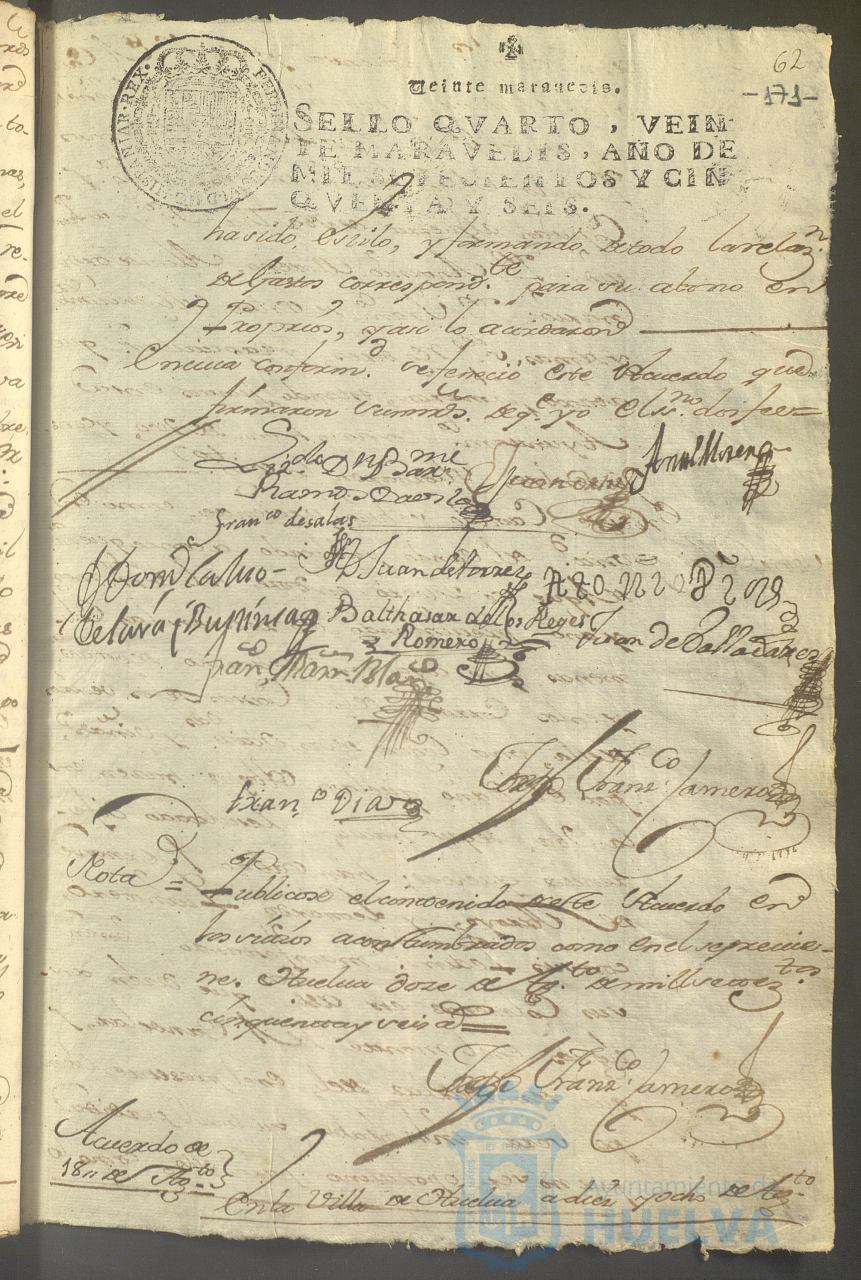 62
-171-
Veinte maravedis.
SELLO QVARTO, VEIN-
TE MARAVEDIS, AÑO DE
MIL SETECIENTOS Y CIN-
QVENTA Y SEIS.
ha sido estilo, y formando de todo la relaz.n
de Gastos correspond.te para su abono en
Proprios, y asi lo acordaron
En cuia conform.d se feneció este Acuerdo que
firmaron sus mrds. de q.e yo el ss.no doi fee=
Ramos Davila
Fran.co de salas
Juan de Torres
Balthasar de los Reyes
Romero
Juan de Valladares
Fran.co Marn. Blanco
Fran.co Diaz
Joseph Franz.co Camero
Nota =
Publicose el contenido de este Acuerdo en
los sitios acostumbrados como en el se previe-
ne. Huelva doze de Ag.to de mill setez.tos
cinquenta y seis a.s=
Joseph Franz.co Camero
Acuerdo de
18 de Ag.to
En la Villa de Huelva a diez y ocho de Ag.to
Ayuntamiento de
HUELVA